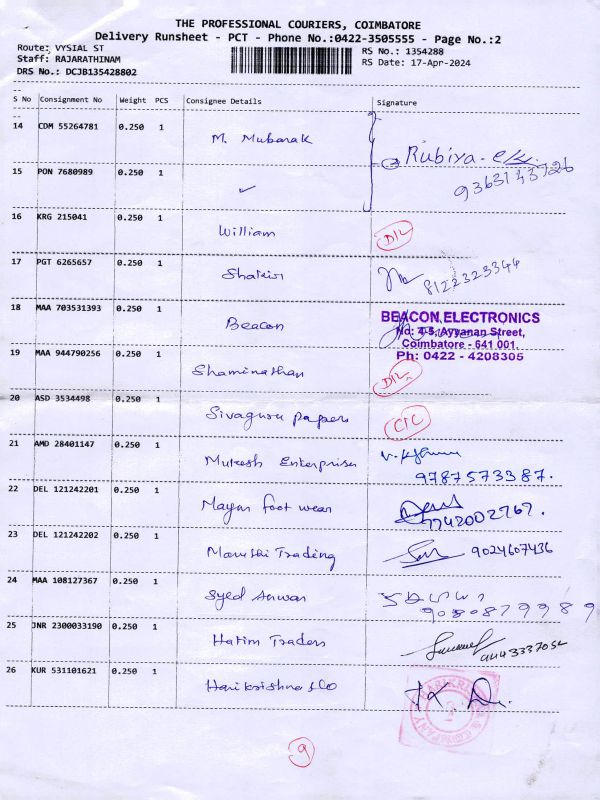 THE PROFESSIONAL COURIERS, COIMBATORE
Delivery Runsheet - PCT - Phone No.:0422-3505555 - Page No.:2
Route: VYSIAL ST
Staff: RAJARATHINAM
DRS No.: DCJB135428802
RS No.: 1354288
RS Date: 17-Apr-2024
S No Consignment No Weight PCS Consignee Details Signature
14 CDM 55264781 0.250 1 M. Mubarak
Rubiya
15 PON 7680989 0.250 1 ✓ 9363143726
16 KRG 215041 0.250 1 William D/L
17 PGT 6265657 0.250 1 Shakir 8122323344
18 MAA 703531393 0.250 1 Beacon
BEACON ELECTRONICS
No: 4-5, Ayyanan Street,
Coimbatore - 641 001.
Ph: 0422 - 4208305
19 MAA 944790256 0.250 1 Shaminathan D/L
20 ASD 3534498 0.250 1 Sivaguru papers C/C
21 AMD 28401147 0.250 1 Mukesh Enterprises
9787573387.
22 DEL 121242201 0.250 1 Mayan foot wear
7742002767.
23 DEL 121242202 0.250 1 Maruthi Trading 9024607436
24 MAA 108127367 0.250 1 Syed Anwar
9080879989
25 JNR 2300033190 0.250 1 Hatim Traders
9443337052
26 KUR 531101621 0.250 1 Harikrishna &Co
9